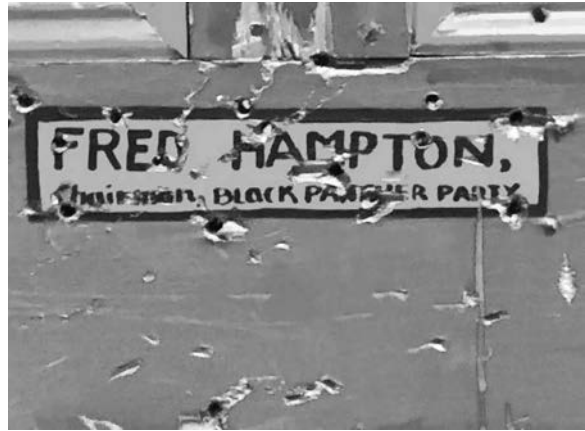 FRED HAMPTON,
Chairman, BLACK PANTHER PARTY